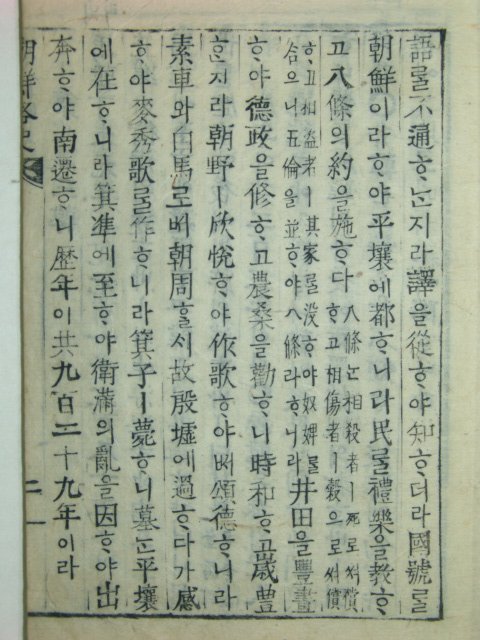 語ᄅᆞᆯ不通ᄒᆞᄂᆞᆫ지라譯을從ᄒᆞ야知ᄒᆞ더라國號ᄅᆞᆯ
朝鮮이라ᄒᆞ야平壤에都ᄒᆞ니라民ᄅᆞᆯ禮樂을敎ᄒᆞ
고八條의約을施ᄒᆞ다
八條ᄂᆞᆫ相殺者ㅣ死로써償
ᄒᆞ고相傷者ㅣ穀으로써償
ᄒᆞ고相盜者ㅣ其家ᄅᆞᆯ沒ᄒᆞ야奴婢ᄅᆞᆯ
ᄉᆞᆷ으니五倫을並ᄒᆞ야八條라ᄒᆞ니라
井田을豐畫
ᄒᆞ야德政을修ᄒᆞ고農桑을勸ᄒᆞ니時和ᄒᆞ고歲豊
ᄒᆞᆫ지라朝野ㅣ欣悅ᄒᆞ야作歌ᄒᆞ야ᄡᅥ頌德ᄒᆞ니라
素車와白馬로ᄡᅥ朝周ᄒᆞᆯ시故殷墟에過ᄒᆞ다가感
ᄒᆞ야麥秀歌ᄅᆞᆯ作ᄒᆞ니라箕子ㅣ薨ᄒᆞ니墓ᄂᆞᆫ平壤
에在ᄒᆞ니라箕準에至ᄒᆞ야衛滿의亂을因ᄒᆞ야出
奔ᄒᆞ야南遷ᄒᆞ니歷年이共九百二十九年이라
朝鮮略史
二